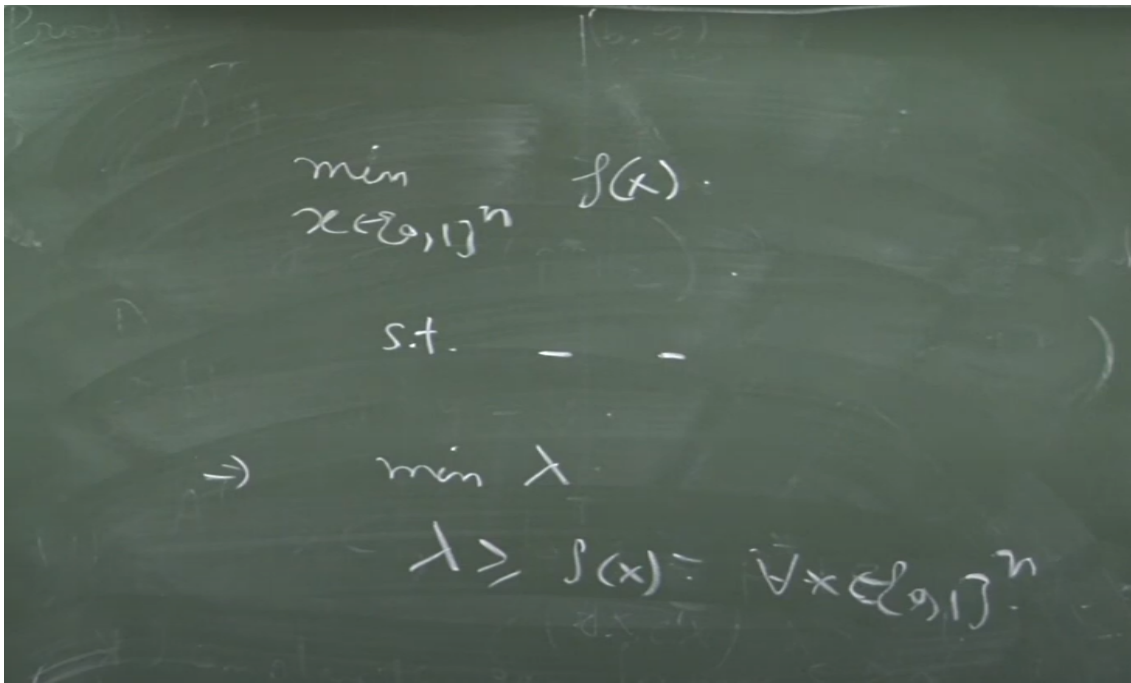 min f(x).
x∈{0,1}ⁿ
s.t. _ _
→ min λ
λ ≥ f(x) = ∀x∈{0,1}ⁿ.